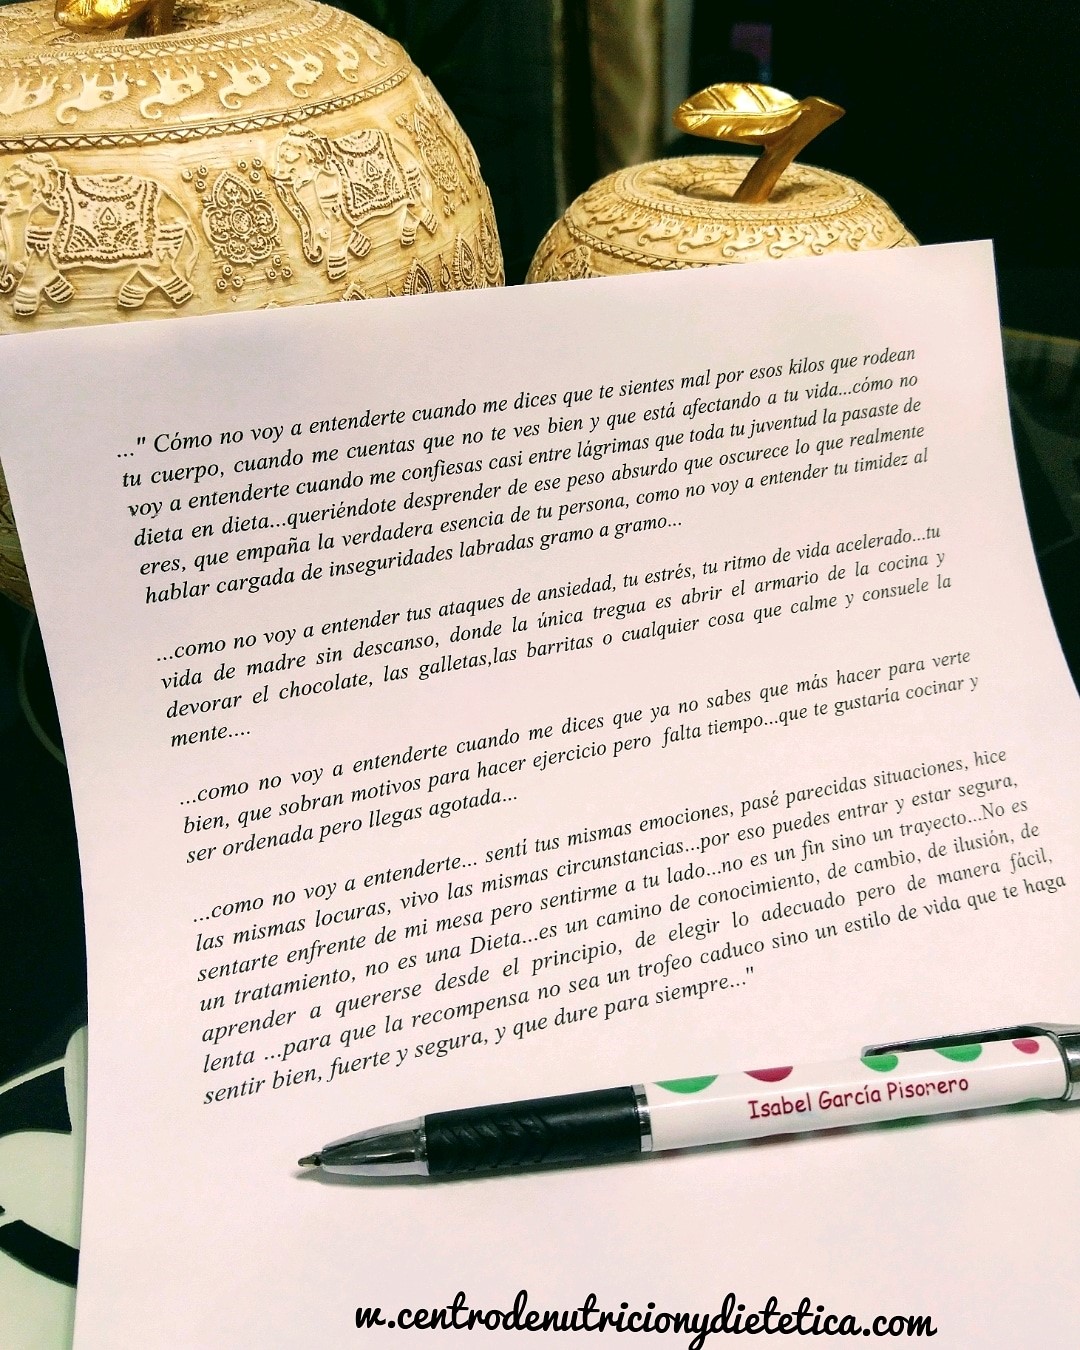 ..." Cómo no voy a entenderte cuando me dices que te sientes mal por esos kilos que rodean
tu cuerpo, cuando me cuentas que no te ves bien y que está afectando a tu vida...cómo no
voy a entenderte cuando me confiesas casi entre lágrimas que toda tu juventud la pasaste de
dieta en dieta...queriéndote desprender de ese peso absurdo que oscurece lo que realmente
eres, que empaña la verdadera esencia de tu persona, como no voy a entender tu timidez al
hablar cargada de inseguridades labradas gramo a gramo...
...como no voy a entender tus ataques de ansiedad, tu estrés, tu ritmo de vida acelerado...tu
vida de madre sin descanso, donde la única tregua es abrir el armario de la cocina y
devorar el chocolate, las galletas,las barritas o cualquier cosa que calme y consuele la
mente....
...como no voy a entenderte cuando me dices que ya no sabes que más hacer para verte
bien, que sobran motivos para hacer ejercicio pero falta tiempo...que te gustaría cocinar y
ser ordenada pero llegas agotada...
...como no voy a entenderte... sentí tus mismas emociones, pasé parecidas situaciones, hice
las mismas locuras, vivo las mismas circunstancias...por eso puedes entrar y estar segura,
sentarte enfrente de mi mesa pero sentirme a tu lado...no es un fin sino un trayecto...No es
un tratamiento, no es una Dieta...es un camino de conocimiento, de cambio, de ilusión, de
aprender a quererse desde el principio, de elegir lo adecuado pero de manera fácil,
lenta ...para que la recompensa no sea un trofeo caduco sino un estilo de vida que te haga
sentir bien, fuerte y segura, y que dure para siempre..."
Isabel García Pisonero
w.centrodenutricionydietetica.com